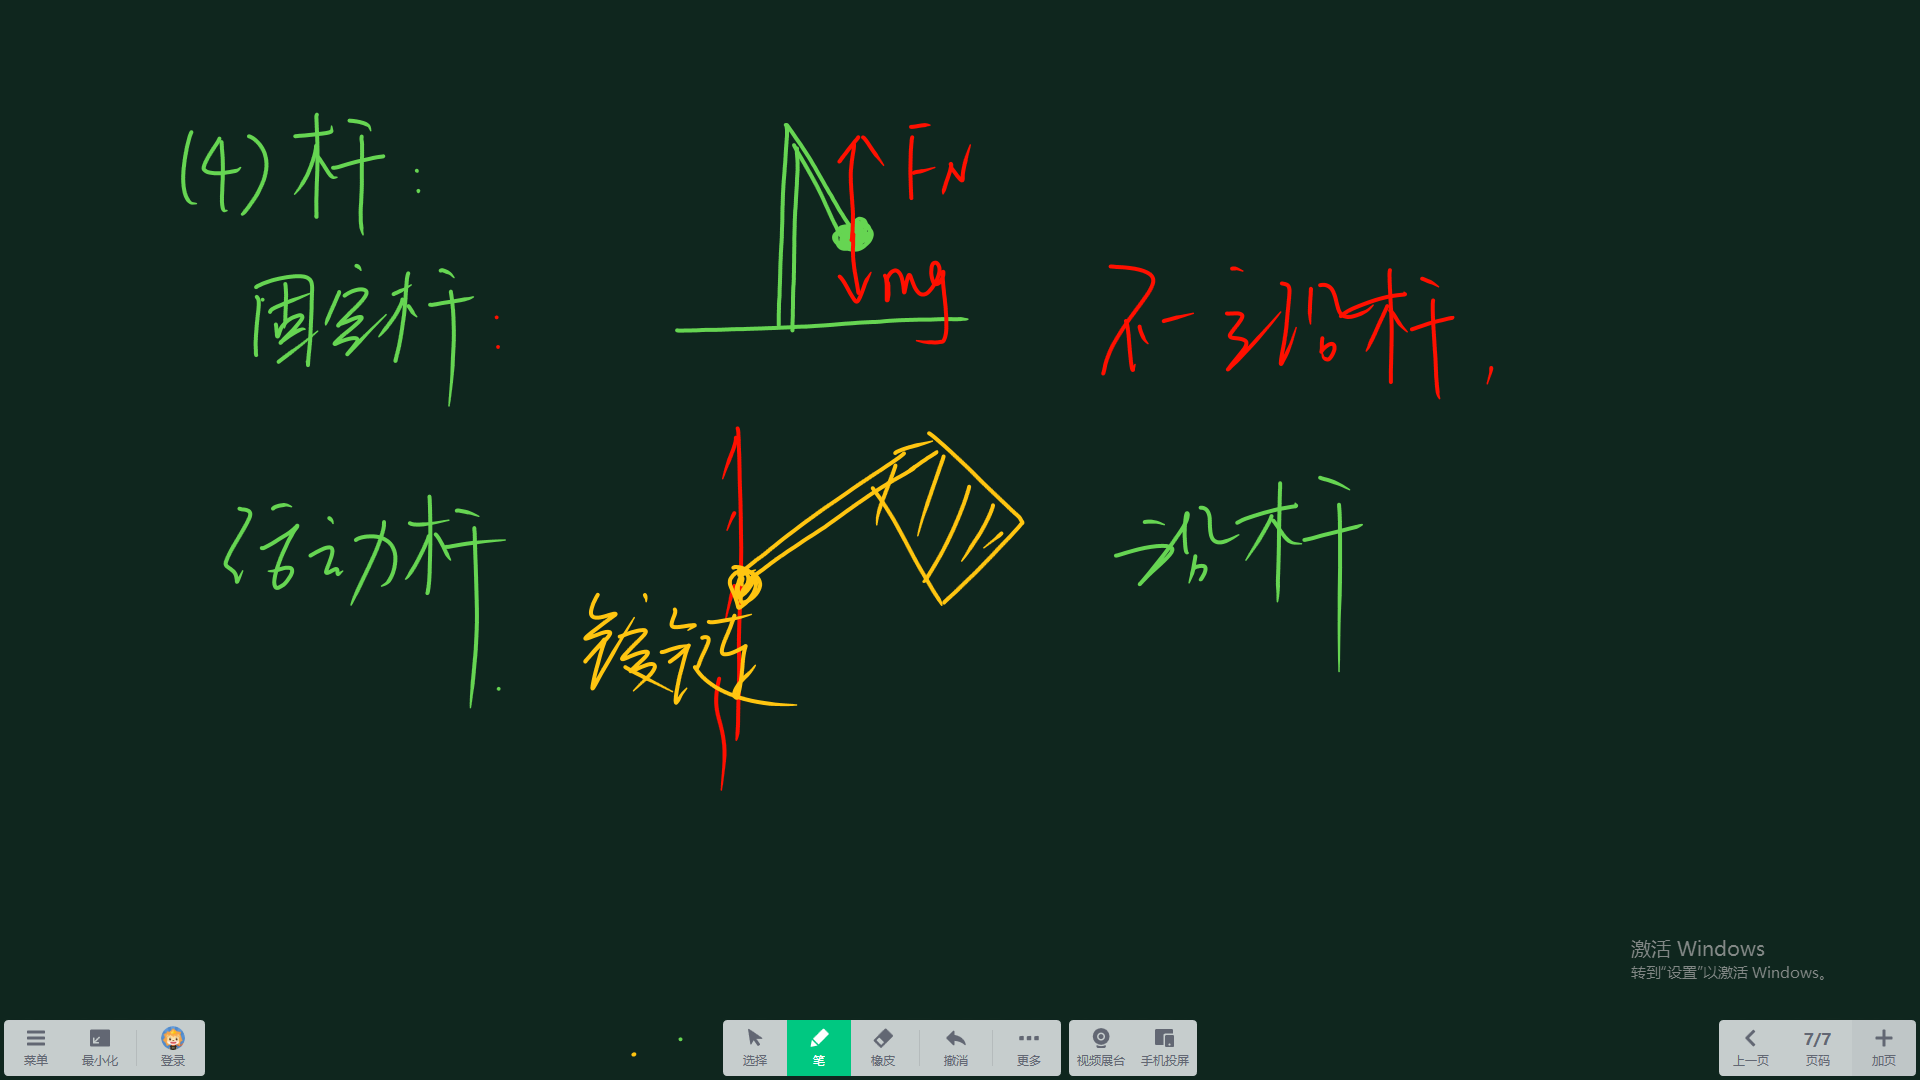 (4)杆:
FN
mg
固定杆:
不一定沿杆.
活动杆.
沿杆
铰链
激活 Windows
转到"设置"以激活 Windows。
菜单
最小化
登录
选择
笔
橡皮
撤消
更多
视频展台
手机投屏
上一页
7/7
页码
加页